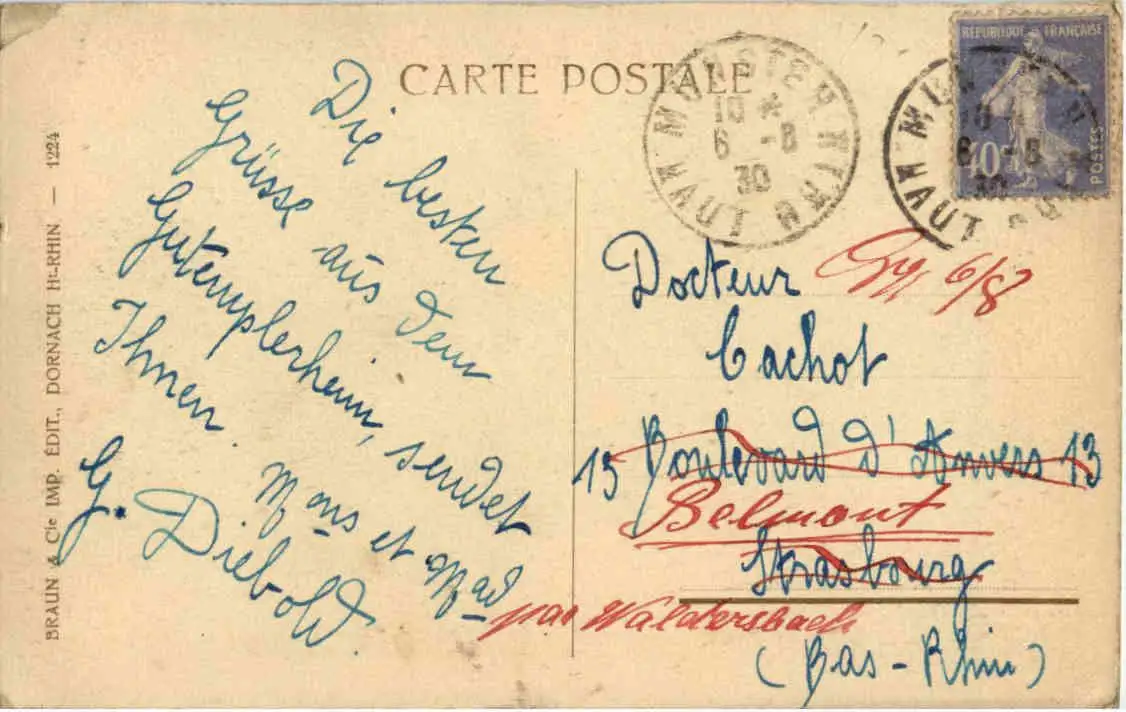 CARTE POSTALE
BRAUN & Cie IMP. ÉDIT., DORNACH Ht-RHIN — 1224
Die besten
Grüsse aus dem
Gutemplerheim, sendet
Ihnen.
Mons et Mad
G. Diebold.
MUNSTER
10 *
6 -8
30
HAUT RHIN
RÉPUBLIQUE FRANÇAISE
40c
POSTES
10
6 -8
30
HAUT
Docteur
6/8
Cachot
13 Boulevard d'Anvers 13
Belmont
Strasbourg
par Waldersbach
(Bas-Rhin)